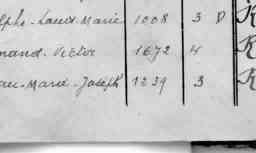 lphe-Louis-Marie 1008 3 D R
mand-Victor 1672 4 R
an-Marie-Joseph 1239 3 R